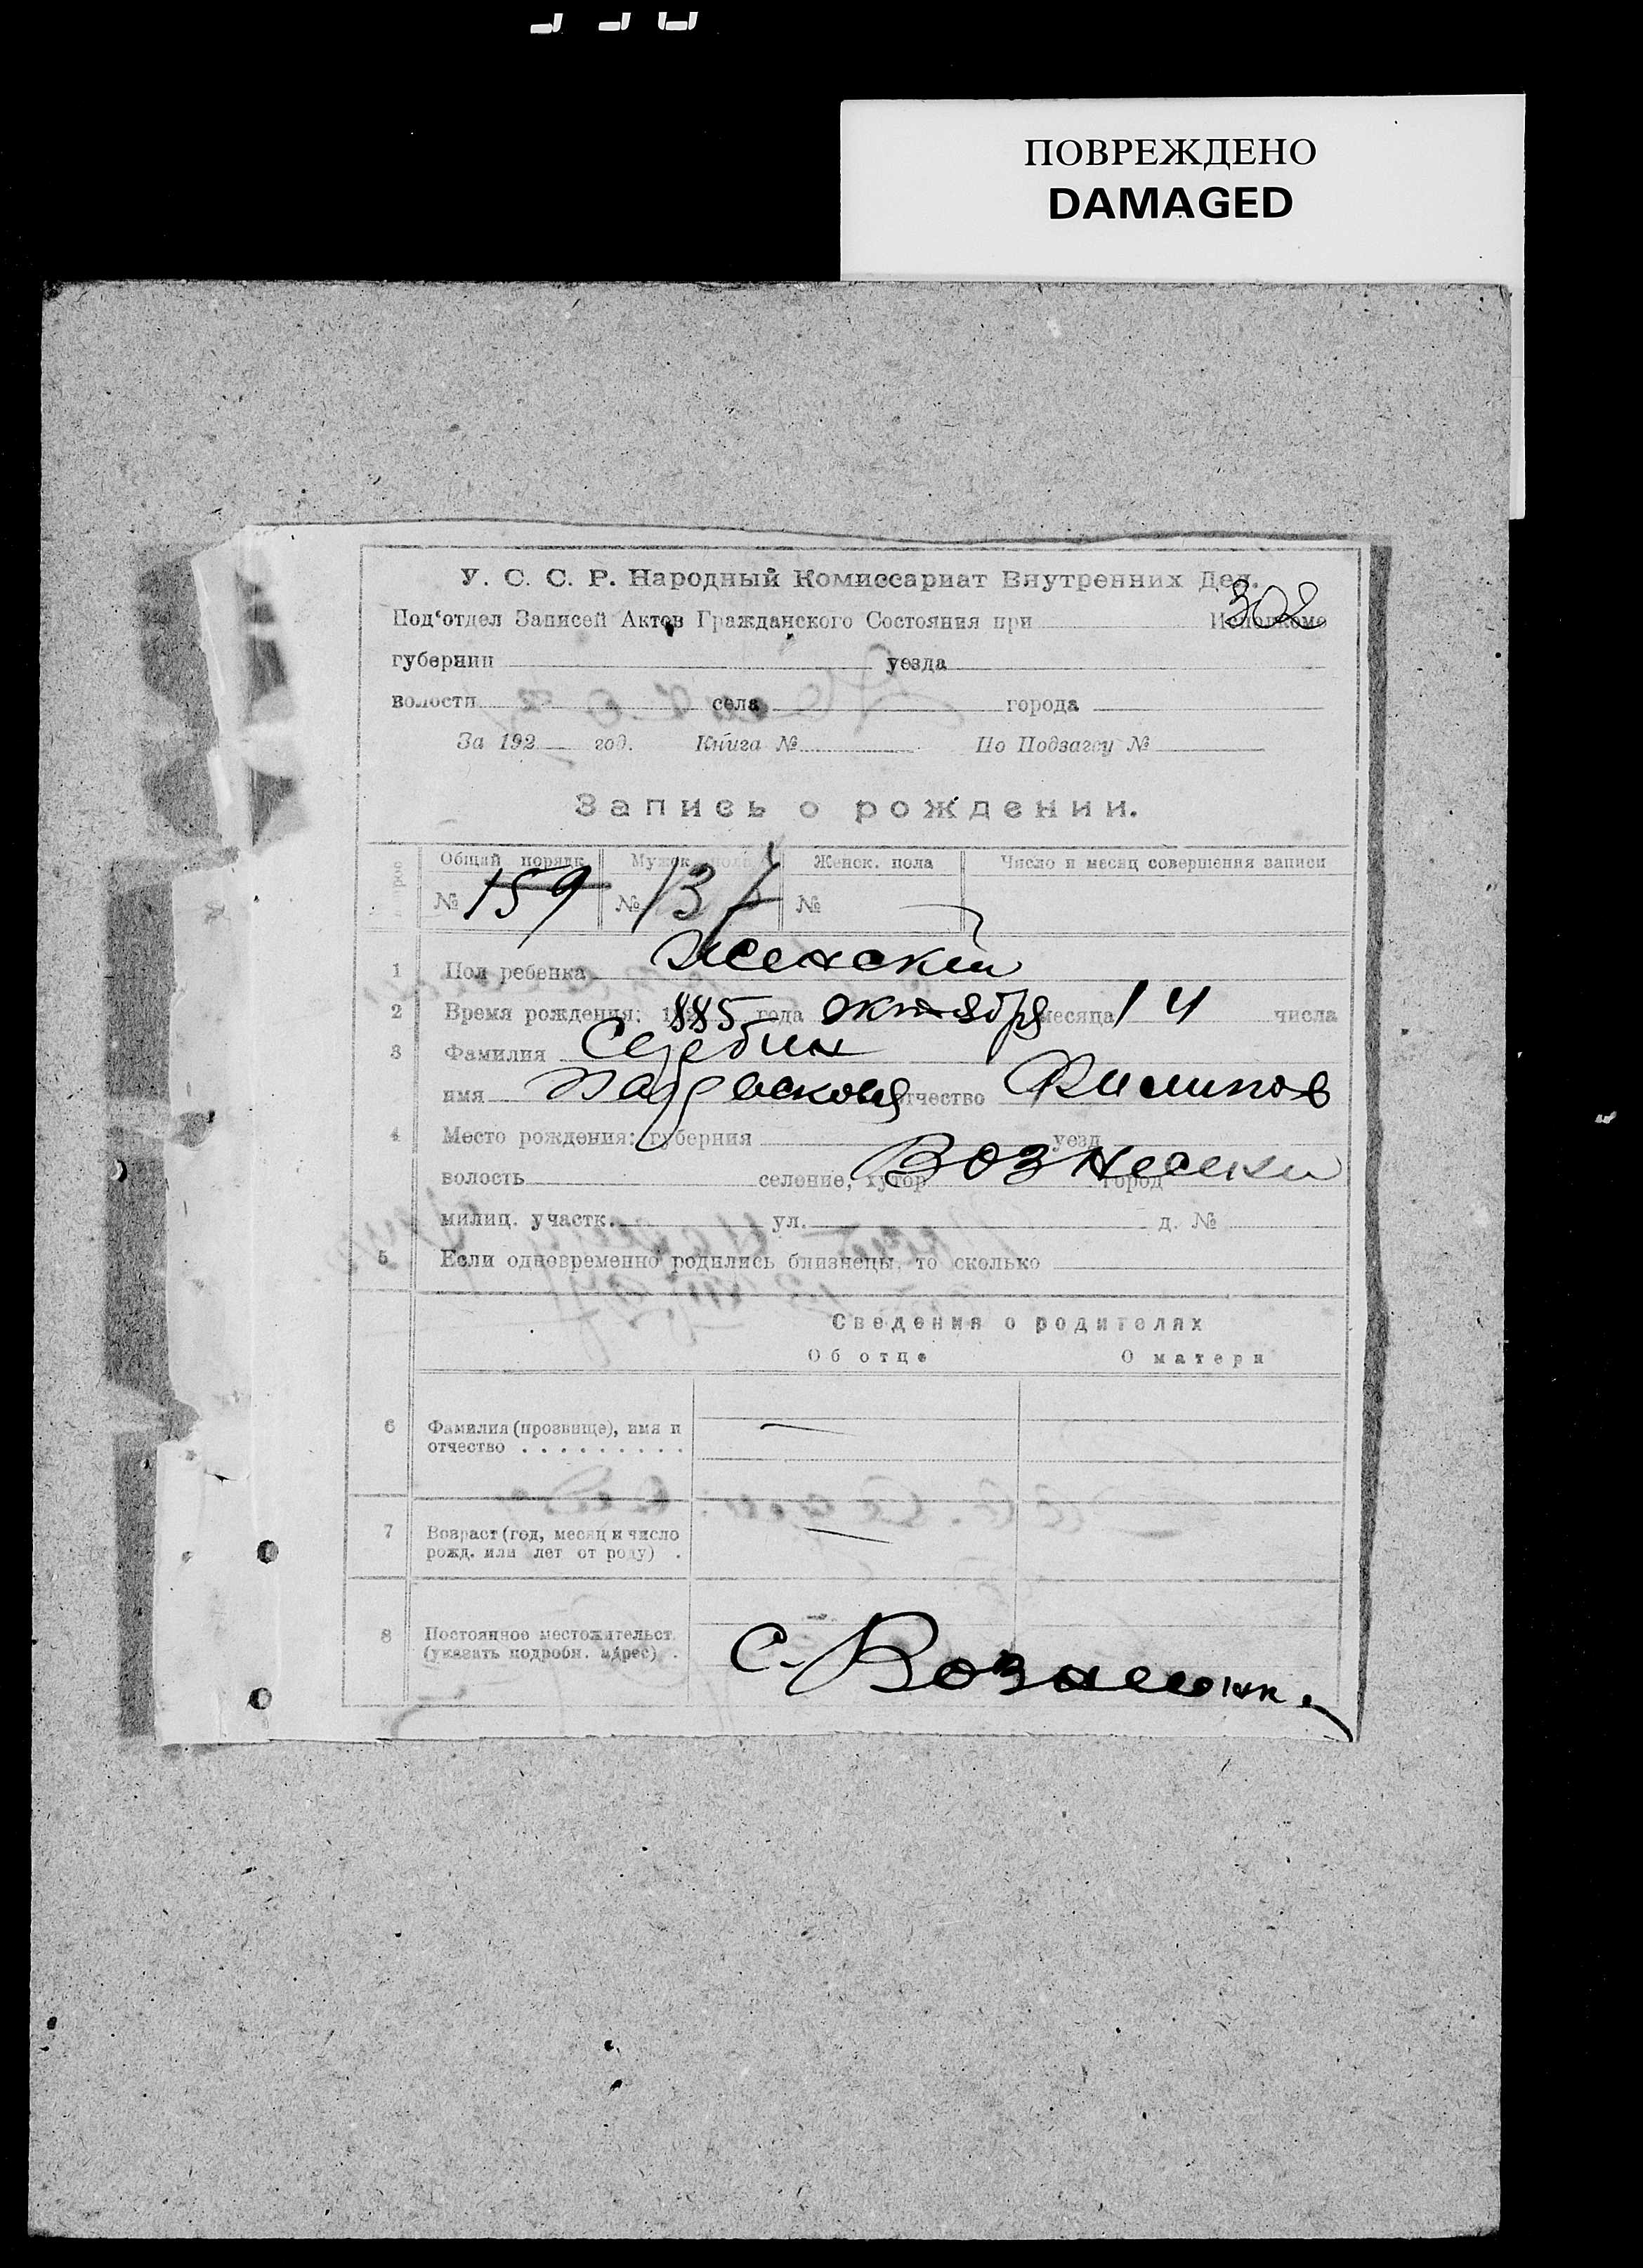 ПОВРЕЖДЕНО
DAMAGED
У. С. С. Р. Народный Комиссариат Внутренних Дел.
302
Под‘отдел Записей Актов Гражданского Состояния при Исполкоме
губернии уезда
волости села города
За 192 год. Книга № По Подзагсу №
Запись о рождении.
Общий порядк Мужск. пола Женск. пола Число и месяц совершения записи
№ 159 № 137 №
1 Пол ребенка Женский
2 Время рождения: 1885 года октября месяца 14 числа
3 Фамилия Серебин
имя Парасковия отчество Филипов
4 Место рождения: губерния уезд
волость селение, хутор город Вознесенки
милиц. участк. ул. д. №
5 Если одновременно родились близнецы, то сколько
Сведения о родителях
Об отце О матери
6 Фамилия (прозвище), имя и
отчество . . . . . . . . .
7 Возраст (год, месяц и число
рожд. или лет от роду) .
8 Постоянное местожительст.
(указать подробн. адрес) .
С. Вознесенк.